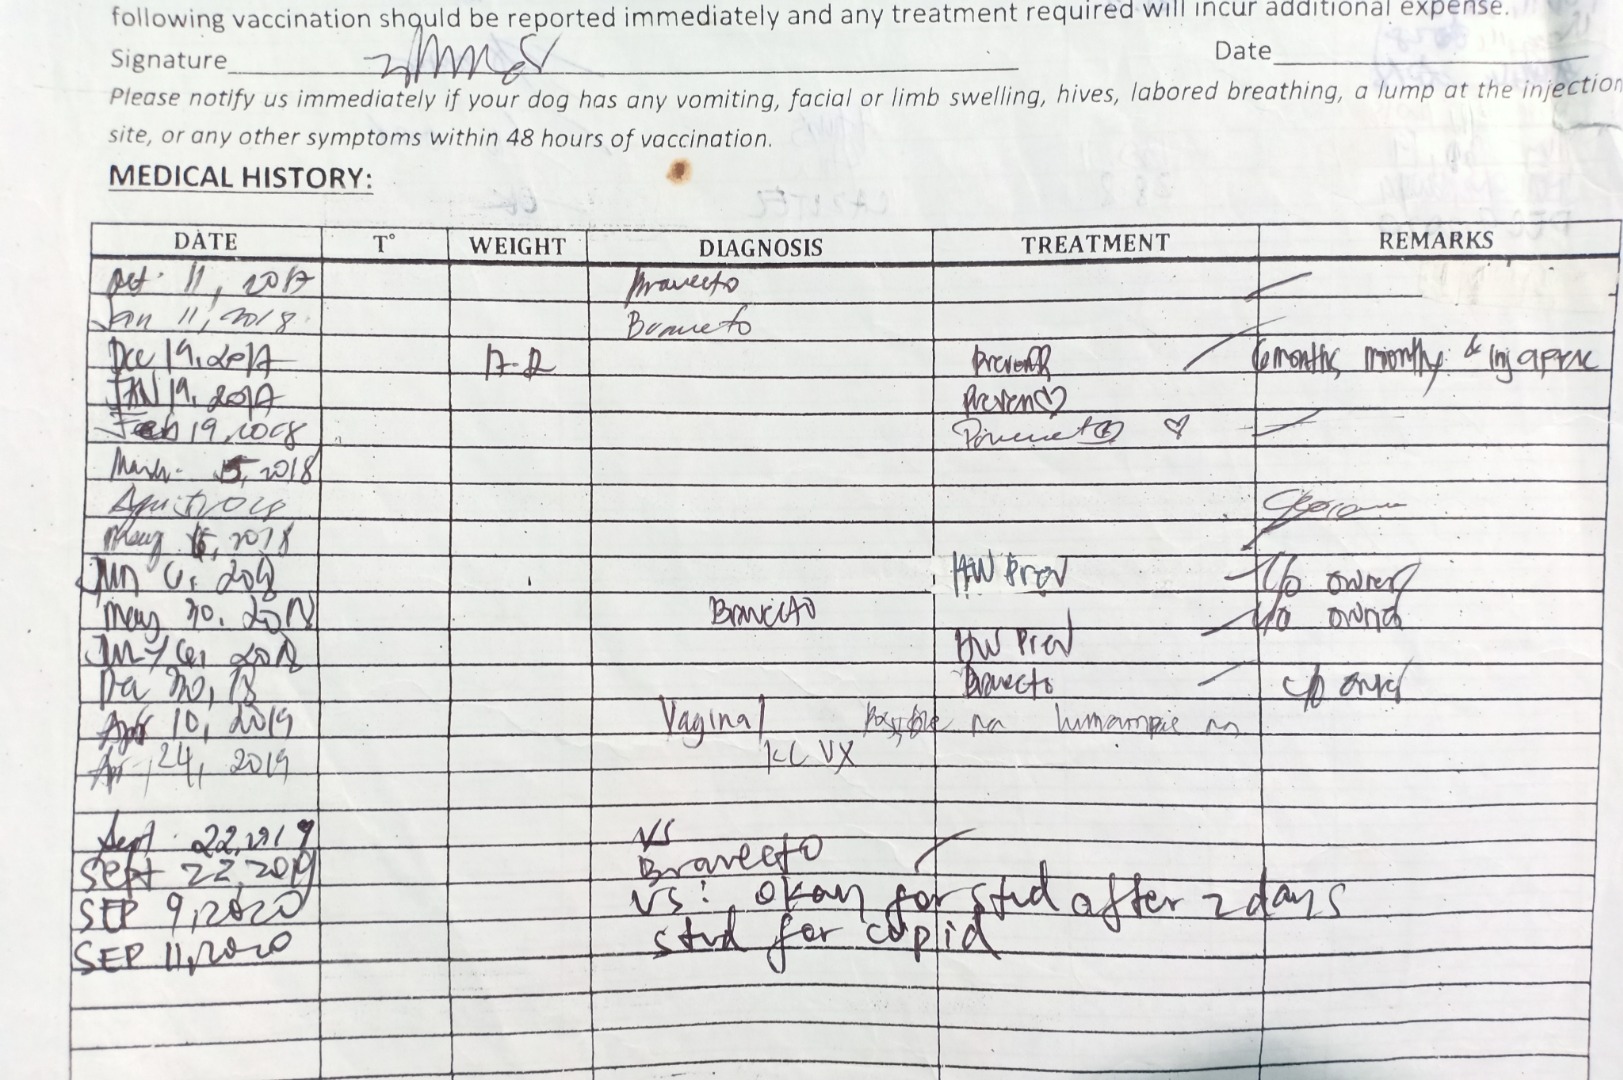 following vaccination should be reported immediately and any treatment required will incur additional expense.
Signature Date
Please notify us immediately if your dog has any vomiting, facial or limb swelling, hives, labored breathing, a lump at the injection
site, or any other symptoms within 48 hours of vaccination.
MEDICAL HISTORY:
DATE T° WEIGHT DIAGNOSIS TREATMENT REMARKS
Oct. 11, 2017 Bravecto
Jan 11, 2018 Bravecto
Dec 19, 2017 6 months monthly
JAN 19, 2017
Feb 19, 2018
March 2018
2018
May 2018
Jun 6, 2018 HW Prev c/o owner
May 30, 2018 Bravecto c/o owner
July 6, 2018 HW Prev
30, 18 Bravecto c/o owner
Apr 10, 2019 Vaginal Possible na lumampas na
Apr 24, 2019 KC VX
Sept. 22, 2019 VS
Sept 22, 2019 Bravecto
SEP 9, 2020 VS: okay for stud after 2 days
SEP 11, 2020 stud for cupid